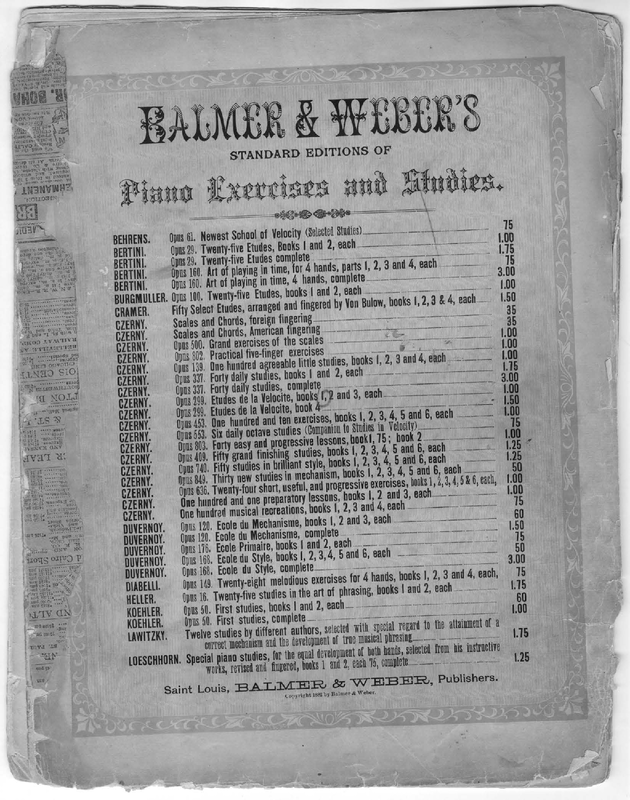 BALMER & WEBER'S
STANDARD EDITIONS OF
Piano Exercises and Studies.
BEHRENS. Opus 61. Newest School of Velocity (Selected Studies) 75
BERTINI. Opus 29. Twenty-five Etudes, Books 1 and 2, each 1.00
BERTINI. Opus 29. Twenty-five Etudes complete 1.75
BERTINI. Opus 160. Art of playing in time, for 4 hands, parts 1, 2, 3 and 4, each 75
BERTINI. Opus 160. Art of playing in time, 4 hands, complete 3.00
BURGMULLER. Opus 100. Twenty-five Etudes, books 1 and 2, each 1.00
CRAMER. Fifty Select Etudes, arranged and fingered by Von Bulow, books 1, 2, 3 & 4, each 1.50
CZERNY. Scales and Chords, foreign fingering 35
CZERNY. Scales and Chords, American fingering 35
CZERNY. Opus 500. Grand exercises of the scales 1.00
CZERNY. Opus 802. Practical five-finger exercises 1.00
CZERNY. Opus 139. One hundred agreeable little studies, books 1, 2, 3 and 4, each 1.00
CZERNY. Opus 337. Forty daily studies, books 1 and 2, each 1.00
CZERNY. Opus 337. Forty daily studies, complete 1.75
CZERNY. Opus 299. Etudes de la Velocite, books 1, 2 and 3, each 3.00
CZERNY. Opus 299. Etudes de la Velocite, book 4 1.00
CZERNY. Opus 453. One hundred and ten exercises, books 1, 2, 3, 4, 5 and 6, each 1.50
CZERNY. Opus 553. Six daily octave studies (Companion to Studies in Velocity) 1.00
CZERNY. Opus 803. Forty easy and progressive lessons, book 1, 75; book 2 75
CZERNY. Opus 409. Fifty grand finishing studies, books 1, 2, 3, 4, 5 and 6, each 1.00
CZERNY. Opus 740. Fifty studies in brilliant style, books 1, 2, 3, 4, 5 and 6, each 1.25
CZERNY. Opus 849. Thirty new studies in mechanism, books 1, 2, 3, 4, 5 and 6, each 1.25
CZERNY. Opus 636. Twenty-four short, useful, and progressive exercises, books 1, 2, 3, 4, 5 & 6, each, 50
CZERNY. One hundred and one preparatory lessons, books 1, 2 and 3, each 1.00
CZERNY. One hundred musical recreations, books 1, 2, 3 and 4, each 1.00
DUVERNOY. Opus 120. Ecole du Mechanisme, books 1, 2 and 3, each 75
DUVERNOY. Opus 120. Ecole du Mechanisme, complete 60
DUVERNOY. Opus 176. Ecole Primaire, books 1 and 2, each 1.50
DUVERNOY. Opus 168. Ecole du Style, books 1, 2, 3, 4, 5 and 6, each 75
DUVERNOY. Opus 168. Ecole du Style, complete 50
DIABELLI. Opus 149. Twenty-eight melodious exercises for 4 hands, books 1, 2, 3 and 4, each, 3.00
HELLER. Opus 16. Twenty-five studies in the art of phrasing, books 1 and 2, each 75
KOEHLER. Opus 50. First studies, books 1 and 2, each 1.75
KOEHLER. Opus 50. First studies, complete 60
1.00
LAWITZKY. Twelve studies by different authors, selected with special regard to the attainment of a
correct mechanism and the development of true musical phrasing 1.75
LOESCHHORN. Special piano studies, for the equal development of both hands, selected from his instructive
works, revised and fingered, books 1 and 2, each 75, complete 1.25
Saint Louis, BALMER & WEBER, Publishers.
Copyright by Balmer & Weber.